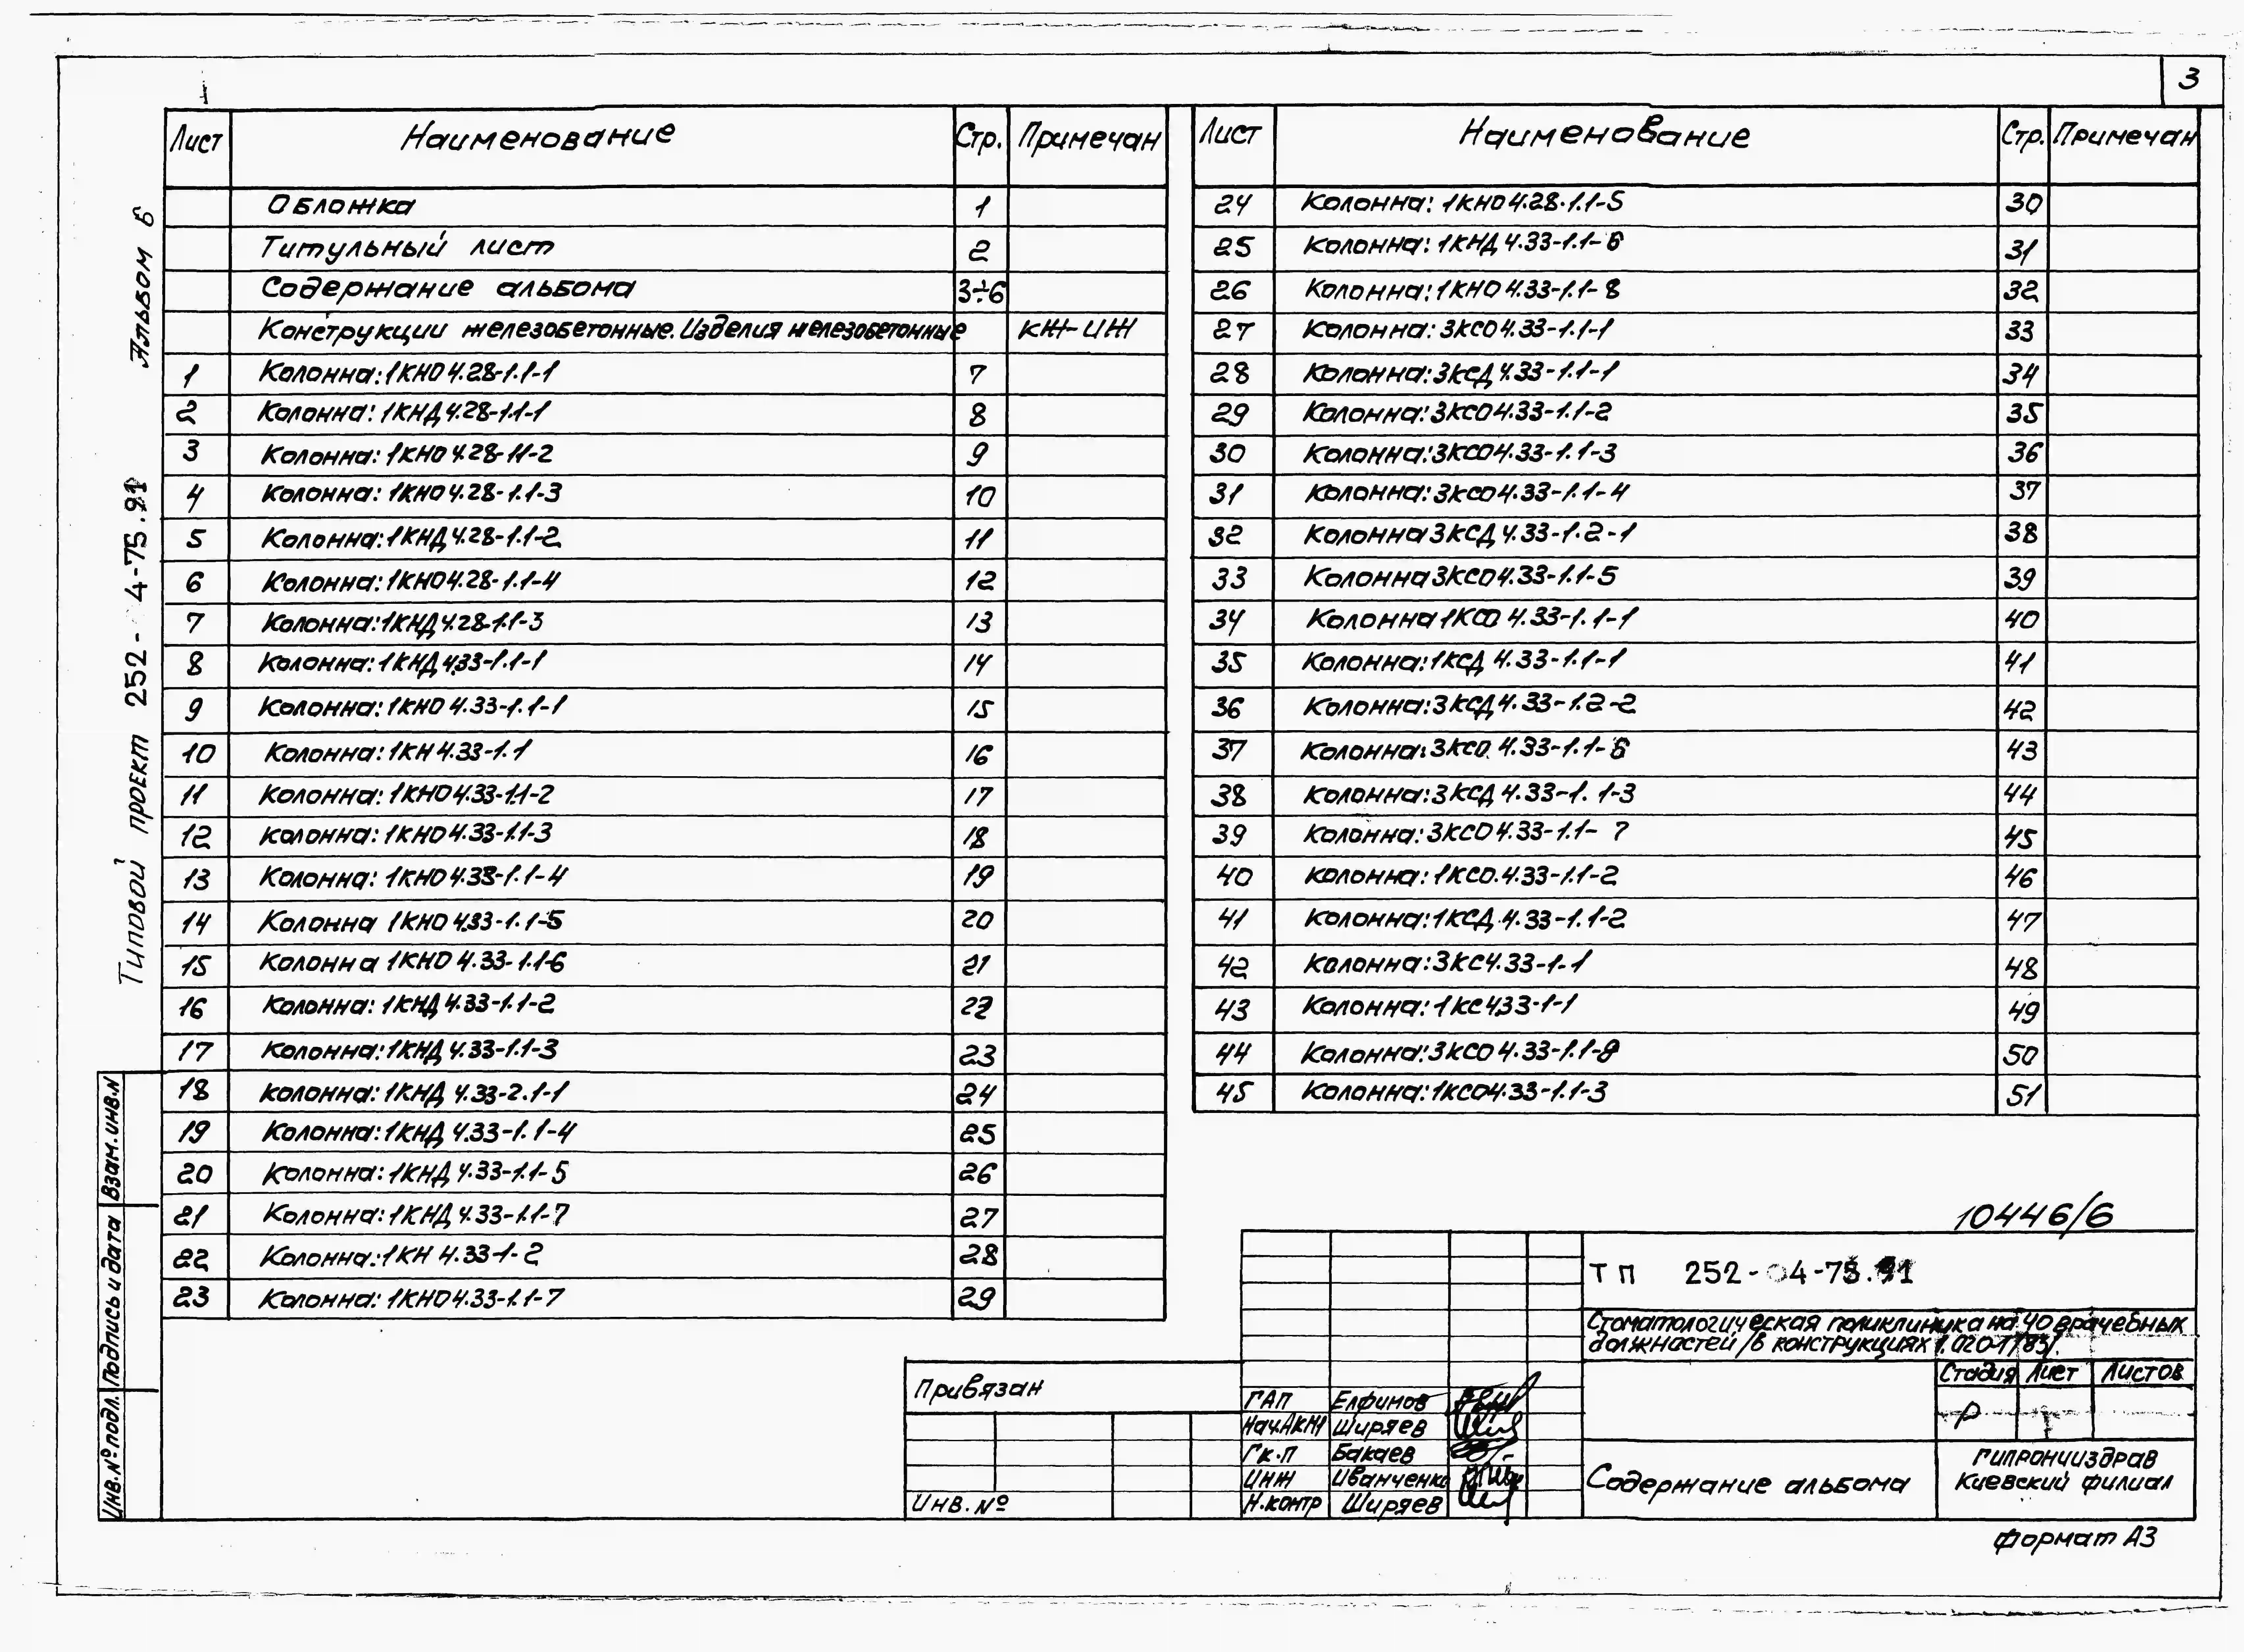 3
Лист Наименование Стр. Примечан
Обложка 1
Титульный лист 2
Содержание альбома 3÷6
Конструкции железобетонные. Изделия железобетонные КЖ-ИЖ
1 Колонна: 1КНО 4.28-1.1-1 7
2 Колонна: 1КНД 4.28-1.1-1 8
3 Колонна: 1КНО 4.28-1.1-2 9
4 Колонна: 1КНО 4.28-1.1-3 10
5 Колонна: 1КНД 4.28-1.1-2 11
6 Колонна: 1КНО 4.28-1.1-4 12
7 Колонна: 1КНД 4.28-1.1-3 13
8 Колонна: 1КНД 4.33-1.1-1 14
9 Колонна: 1КНО 4.33-1.1-1 15
10 Колонна: 1КН 4.33-1.1 16
11 Колонна: 1КНО 4.33-1.1-2 17
12 Колонна: 1КНО 4.33-1.1-3 18
13 Колонна: 1КНО 4.33-1.1-4 19
14 Колонна 1КНО 4.33-1.1-5 20
15 Колонна 1КНО 4.33-1.1-6 21
16 Колонна: 1КНД 4.33-1.1-2 22
17 Колонна: 1КНД 4.33-1.1-3 23
18 Колонна: 1КНД 4.33-2.1-1 24
19 Колонна: 1КНД 4.33-1.1-4 25
20 Колонна: 1КНД 4.33-1.1-5 26
21 Колонна: 1КНД 4.33-1.1-7 27
22 Колонна: 1КН 4.33-1-2 28
23 Колонна: 1КНО 4.33-1.1-7 29
Лист Наименование Стр. Примечан
24 Колонна: 1КНО 4.28-1.1-5 30
25 Колонна: 1КНД 4.33-1.1-6 31
26 Колонна: 1КНО 4.33-1.1-8 32
27 Колонна: 3КСО 4.33-1.1-1 33
28 Колонна: 3КСД 4.33-1.1-1 34
29 Колонна: 3КСО 4.33-1.1-2 35
30 Колонна: 3КСО 4.33-1.1-3 36
31 Колонна: 3КСО 4.33-1.1-4 37
32 Колонна 3КСД 4.33-1.2-1 38
33 Колонна 3КСО 4.33-1.1-5 39
34 Колонна 1КСО 4.33-1.1-1 40
35 Колонна: 1КСД 4.33-1.1-1 41
36 Колонна: 3КСД 4.33-1.2-2 42
37 Колонна: 3КСО 4.33-1.1-6 43
38 Колонна: 3КСД 4.33-1.1-3 44
39 Колонна: 3КСО 4.33-1.1-7 45
40 Колонна: 1КСО.4.33-1.1-2 46
41 Колонна: 1КСД 4.33-1.1-2 47
42 Колонна: 3КС 4.33-1-1 48
43 Колонна: 1КС 4.33-1-1 49
44 Колонна: 3КСО 4.33-1.1-8 50
45 Колонна: 1КСО 4.33-1.1-3 51
Типовой проект 252-4-75.91 Альбом 6
Взам. инв. N
Подпись и дата
Инв. № подл.
10446/6
ТП 252-04-75.91
Стоматологическая поликлиника на 40 врачебных
должностей /в конструкциях 1.020-1/83/.
Стадия Лист Листов
Р 1
Содержание альбома
Гипронииздрав
Киевский филиал
Привязан
Инв. №
ГАП Елфимов
Нач.АКМ1 Ширяев
Гк.п Бакаев
Инж Иванченко
Н.контр Ширяев
Формат А3